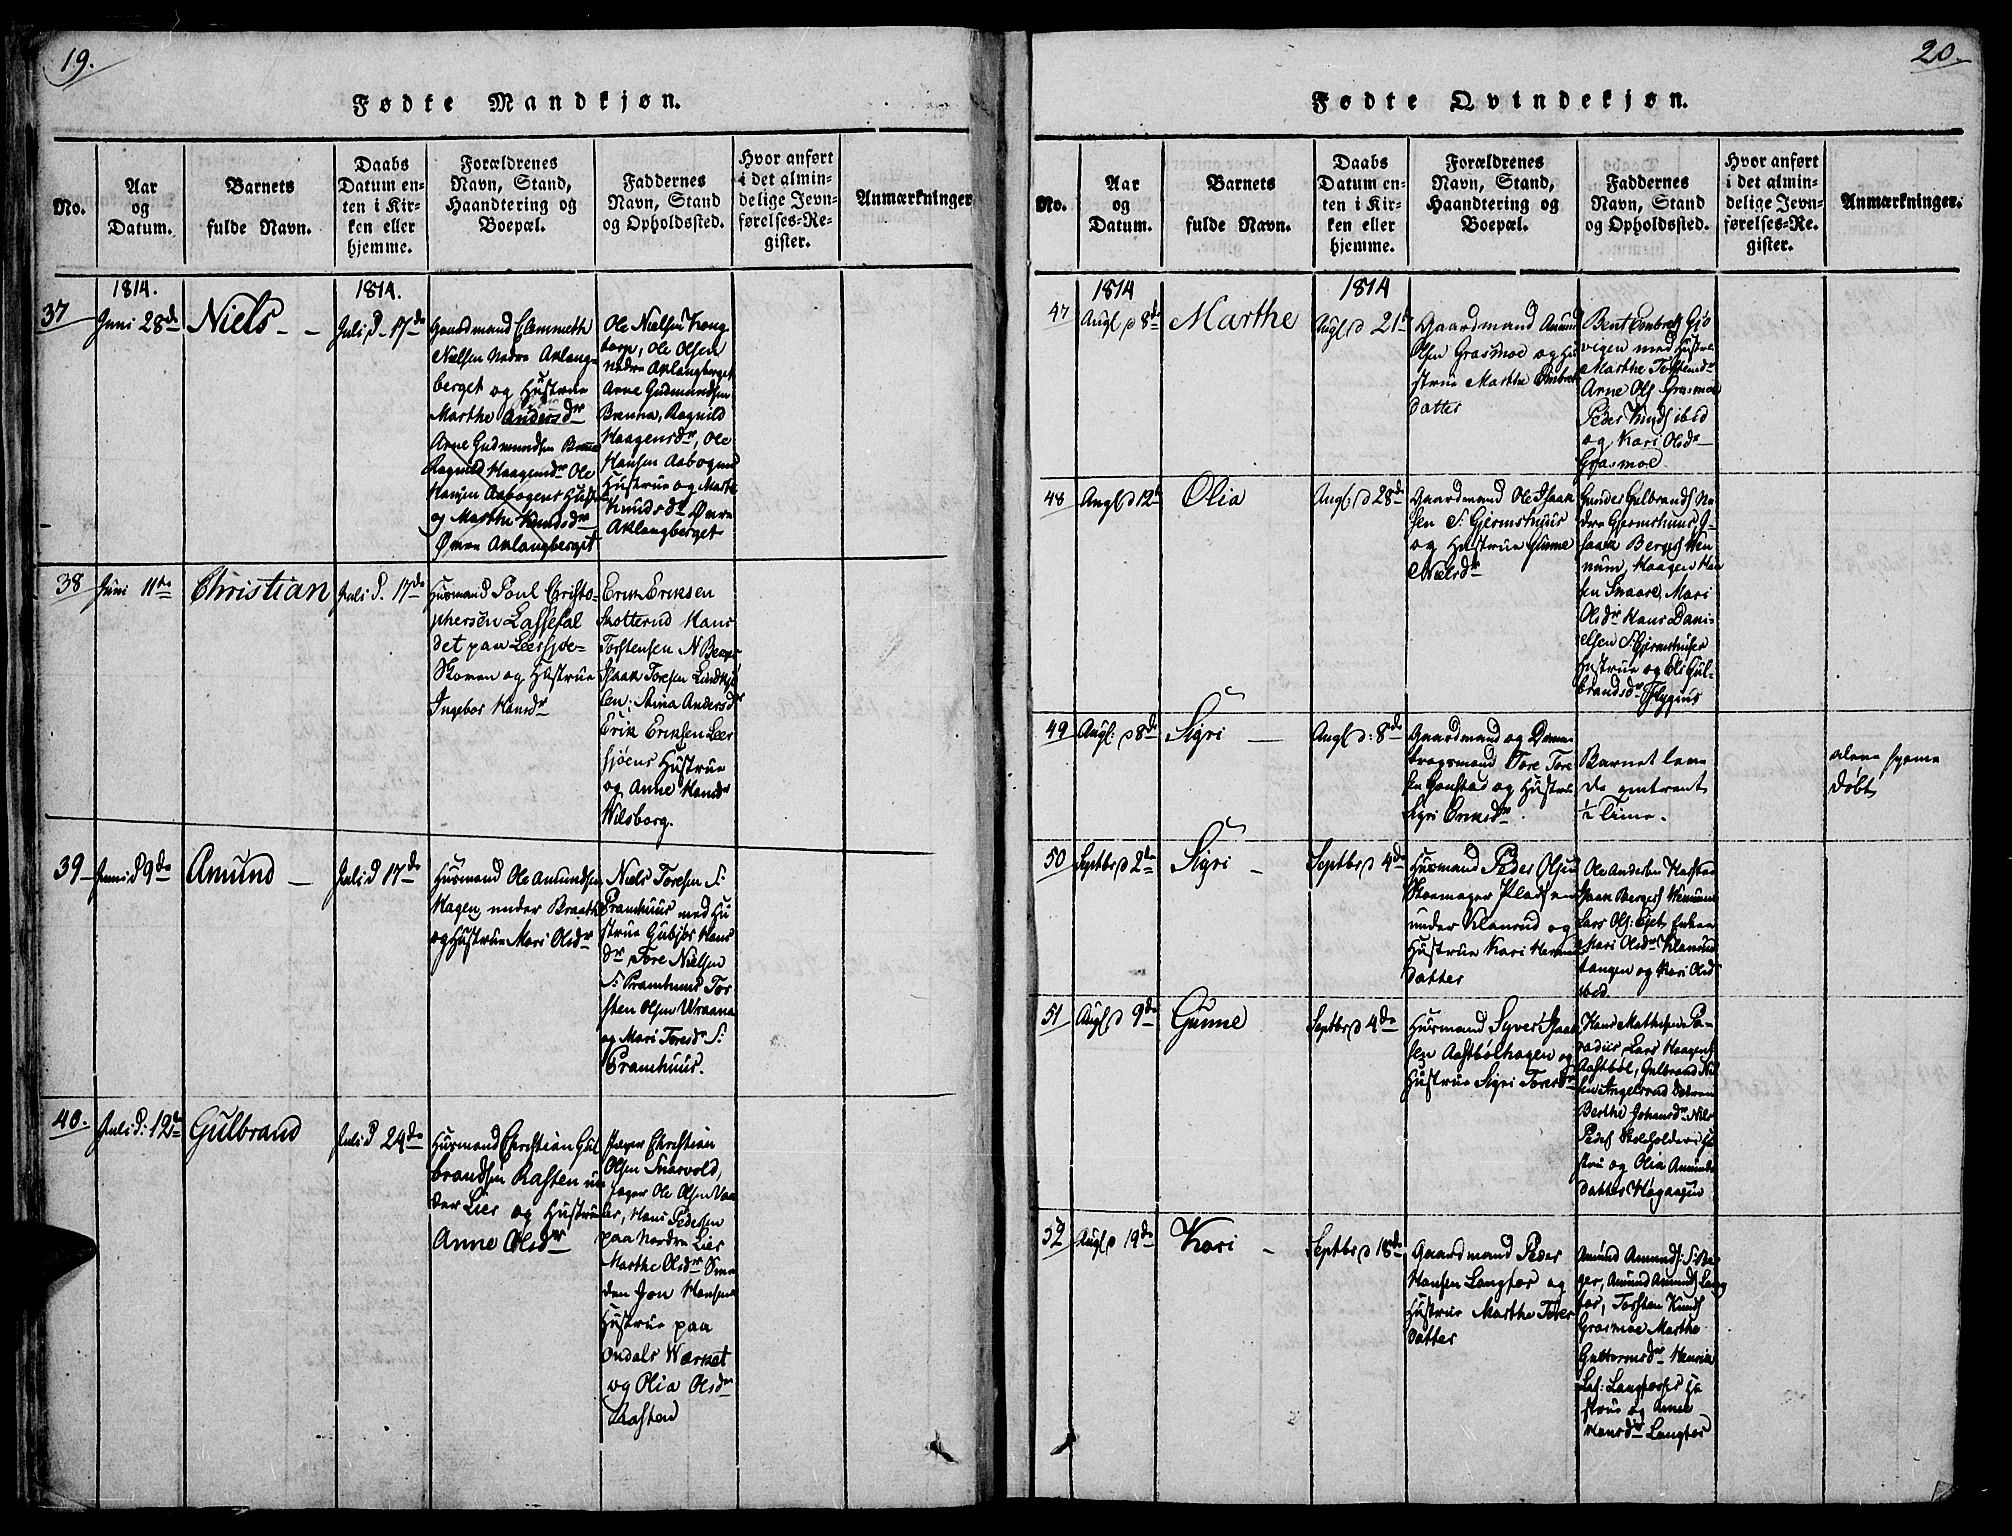 19.
Fødte Mandkjøn.
No.
Aar
og
Datum.
Barnets
fulde Navn.
Daabs
Datum en-
ten i Kir-
ken eller
hjemme.
Forældrenes
Navn, Stand,
Haandtering og
Boepæl.
Faddernes
Navn, Stand
og Opholdssted.
Hvor anført
i det almin-
delige Jevn-
førelses-Re-
gister.
Anmærkninger
1814.
1814.
37
Juni 28de
Niels
Juli d. 17de
Gaardmand Clemmeth
Nielsen Nedre Aklang-
berget og Hustrue
Marthe Andersdr
Arne Gudmundsen
Ragnild Haagensdr Ole
Hansen Aabogens Hustr
og Marthe Knudsdr
Øvre Aklangberget
Ole Nielsen Kong
torp, Ole Olsen
nedre Aklangberget
Arne Gudmundsen
Brenna, Ragnild
Haagensdr, Ole
Hansen Aabogens
Hustrue og Marte
Knudsdr Øvre
Aklangberget
38
Juni 11te
Christian
Juli d. 17de
Husmand Poul Christo-
phersen Lassefal
det paa Leersjøe-
Skoven og Hustrue
Ingebor Hansdr
Erik Eriksen
Skotterud Hans
Torstensen N Berger
Isaak Toresen Lindkjø
len: Stina Andersdr
Erik Eriksen Leer
sjøens Hustrue
og Anne Hansdr
Wilsborg.
39
Juni d 9de
Amund
Juli d 17de
Husmand Ole Amundsen
Hagen under Braath
og Hustrue Mari Olsdr
Niels Toresen S:
Pramhuus med Hu
strue Gubjør Hans
dr, Tore Nielsen
S: Pramhuus Tor
sten Olsen Wraana
og Mari Toresdr S:
Pramhuus.
40.
Juli d: 12te
Gulbrand
Juli d 24de
Husmand Christian Gul
brandsen Rasten un
der Lier og Hustrue
Anne Olsdr
Jæger Christian
Olsen Snarvold,
Jæger Ole Olsen Vaa
ler, Hans Pedersen
paa Nordre Lier
Marthe Olsdr Sme
den Jon Hansens
Hustrue paa
Ondals Værket
og Olia Olsdr
Rasten
20.
Fødte Qvindekjøn.
No.
Aar
og
Datum.
Barnets
fulde Navn.
Daabs
Datum en-
ten i Kir-
ken eller
hjemme.
Forældrenes
Navn, Stand,
Haandtering og
Boepæl.
Faddernes
Navn, Stand
og Opholdssted.
Hvor anført
i det almin-
delige Jevn-
førelses-Re-
gister.
Anmærkninger.
1814
1814
47
Augl d 8de
Marthe
Augl d 21de
Gaardmand Amund
Olsen Grasmoe og Hu
strue Marthe Embret
datter
Bent Embrets Gjø
vigen med Hustrue
Marthe Torstensdr
Arne Ols Grasmoe
Peder Knuds ibid
og Kari Olsdr
Grasmoe
48
Augl d 12te
Olia
Augl: d 28de
Gaardmand Ole Isaak
sen S: Gjermshuus
og Hustrue Gunne
Nielsdr
Gunder Gulbrands Ne
dre Gjermshuus, I-
saak Bergers Wen
num, Haagen Han
sen Snaare, Mari
Olsdr Hans Dani-
elsen S: Gjermshuses
Hustrue og Eli Gul-
brandsdr Flygins
49
Augl: d 8de
Sigri
Augl d: 8de
Gaardmand og Danne-
brogsmand Tore Tore
sen Gonstad og Hustru
Sigri Eriksdr
Barnet leve
de omtrent
½ Time.
alene hjeme
døbt
50
Septbr d 2de
Sigri
Septbr d 4de
Husmand Peder Olsen
Skoemager Pladsen
under Klanrud og
Hustrue Kari Hermans
datter
Ole Andersen Hafstad
Isaak Bergers Wennum
Lars Ols: Eiet, Enken
Mari Olsdr Klanrud
tangen og Kari Olsdr
ibid.
51
Augl d 9de
Gunne
Septbr d 4de
Husmand Syver Isaak
sen Aastbølhagen og
Hustrue Sigri Toresdr
Hans Mathisen Pa-
radiis, Lars Haagens
Aastbøl, Gulbrand Niel
sen Angelsrud
Berthe Johansdr Niels
Peders Skolholders Hu
strue og Olia Amunds
datter Haagaasen
52
Augl d 19de
Kari
Septbr d 18de
Gaardmand Peder
Hansen Langfar og
Hustrue Marthe Tores
datter
Amund Amunds: S: Ber
ger, Amund Amunds Lang
far, Torsten Knuds
Grasmoe Marthe
Guttormsdr Henrik
Lars: Langfars Hu
strue og Anne
Hansdr Langfar